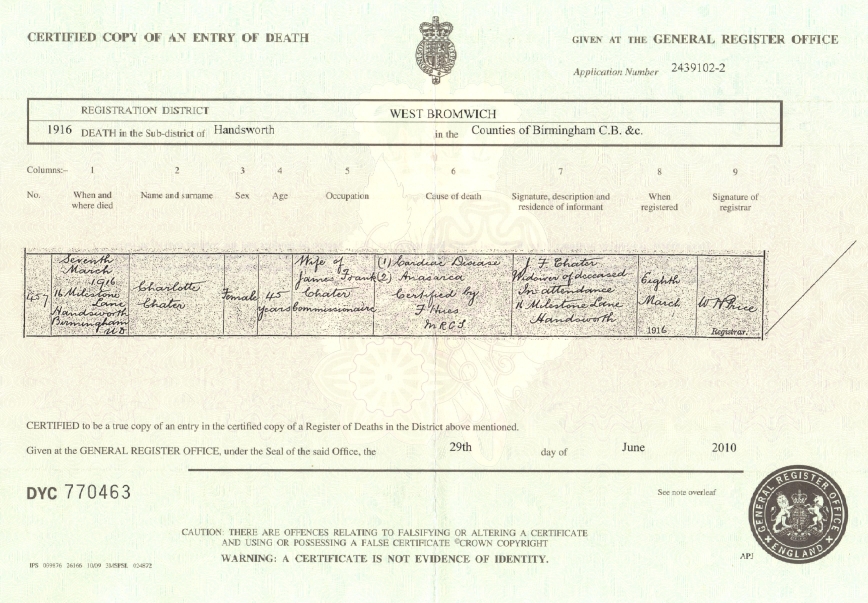 CERTIFIED COPY OF AN ENTRY OF DEATH
GIVEN AT THE GENERAL REGISTER OFFICE
Application Number 2439102-2
REGISTRATION DISTRICT WEST BROMWICH
1916 DEATH in the Sub-district of Handsworth in the Counties of Birmingham C.B. &c.
Columns:- 1 2 3 4 5 6 7 8 9
No. When and where died Name and surname Sex Age Occupation Cause of death Signature, description and residence of informant When registered Signature of registrar
457
Seventh
March
1916
16 Milestone
Lane
Handsworth
Birmingham
U.D
Charlotte
Chater
Female
45
years
Wife of
James Frank
Chater
Commissionaire
(1) Cardiac Disease
(2) Anasarca
Certified by
MRCS
J F Chater
Widower of deceased
In attendance
16 Milestone Lane
Handsworth
Eighth
March
1916
W H Price
Registrar.
CERTIFIED to be a true copy of an entry in the certified copy of a Register of Deaths in the District above mentioned.
Given at the GENERAL REGISTER OFFICE, under the Seal of the said Office, the 29th day of June 2010
DYC 770463
See note overleaf
CAUTION: THERE ARE OFFENCES RELATING TO FALSIFYING OR ALTERING A CERTIFICATE
AND USING OR POSSESSING A FALSE CERTIFICATE ©CROWN COPYRIGHT
WARNING: A CERTIFICATE IS NOT EVIDENCE OF IDENTITY.
GENERAL REGISTER OFFICE
ENGLAND